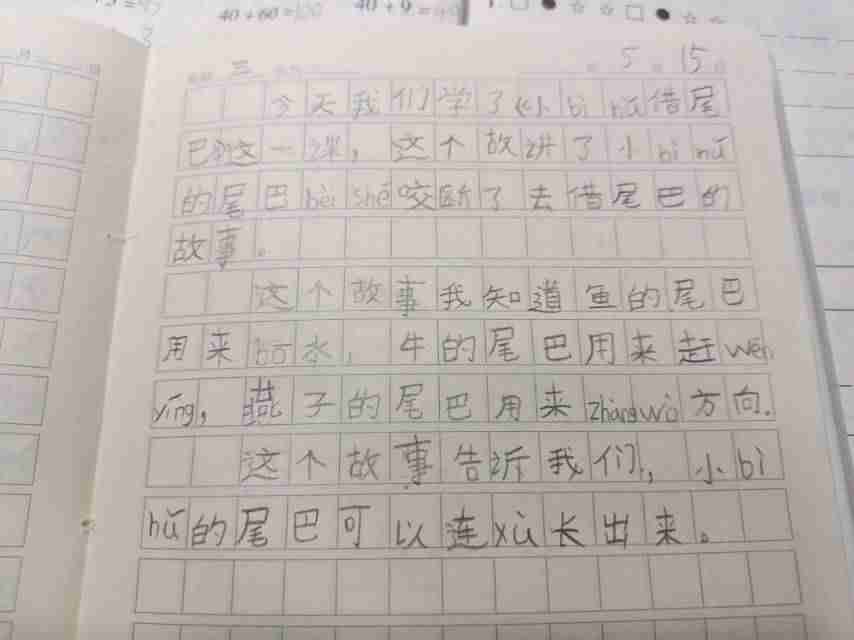 40+60=100 40+9=49
三 5 15
今天我们学了《小bì hǔ借尾
巴》这一课，这个故讲了小bì hǔ
的尾巴bèi shé咬断了去借尾巴的
故事。
这个故事我知道鱼的尾巴
用来bō水，牛的尾巴用来赶wén
yíng，燕子的尾巴用来zhǎngwò方向.
这个故事告诉我们，小bì
hǔ的尾巴可以连xù长出来。